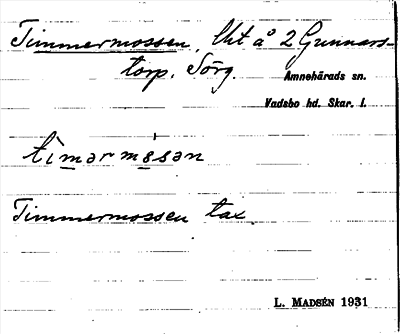 Timmermossen, Lht å 2 Gunnars-
torp, Sörg.
Amnehärads sn.
Vadsbo hd. Skar. l.
tìmərmɵ̀sən
Timmermossen tax.
L. MADSÉN 1931